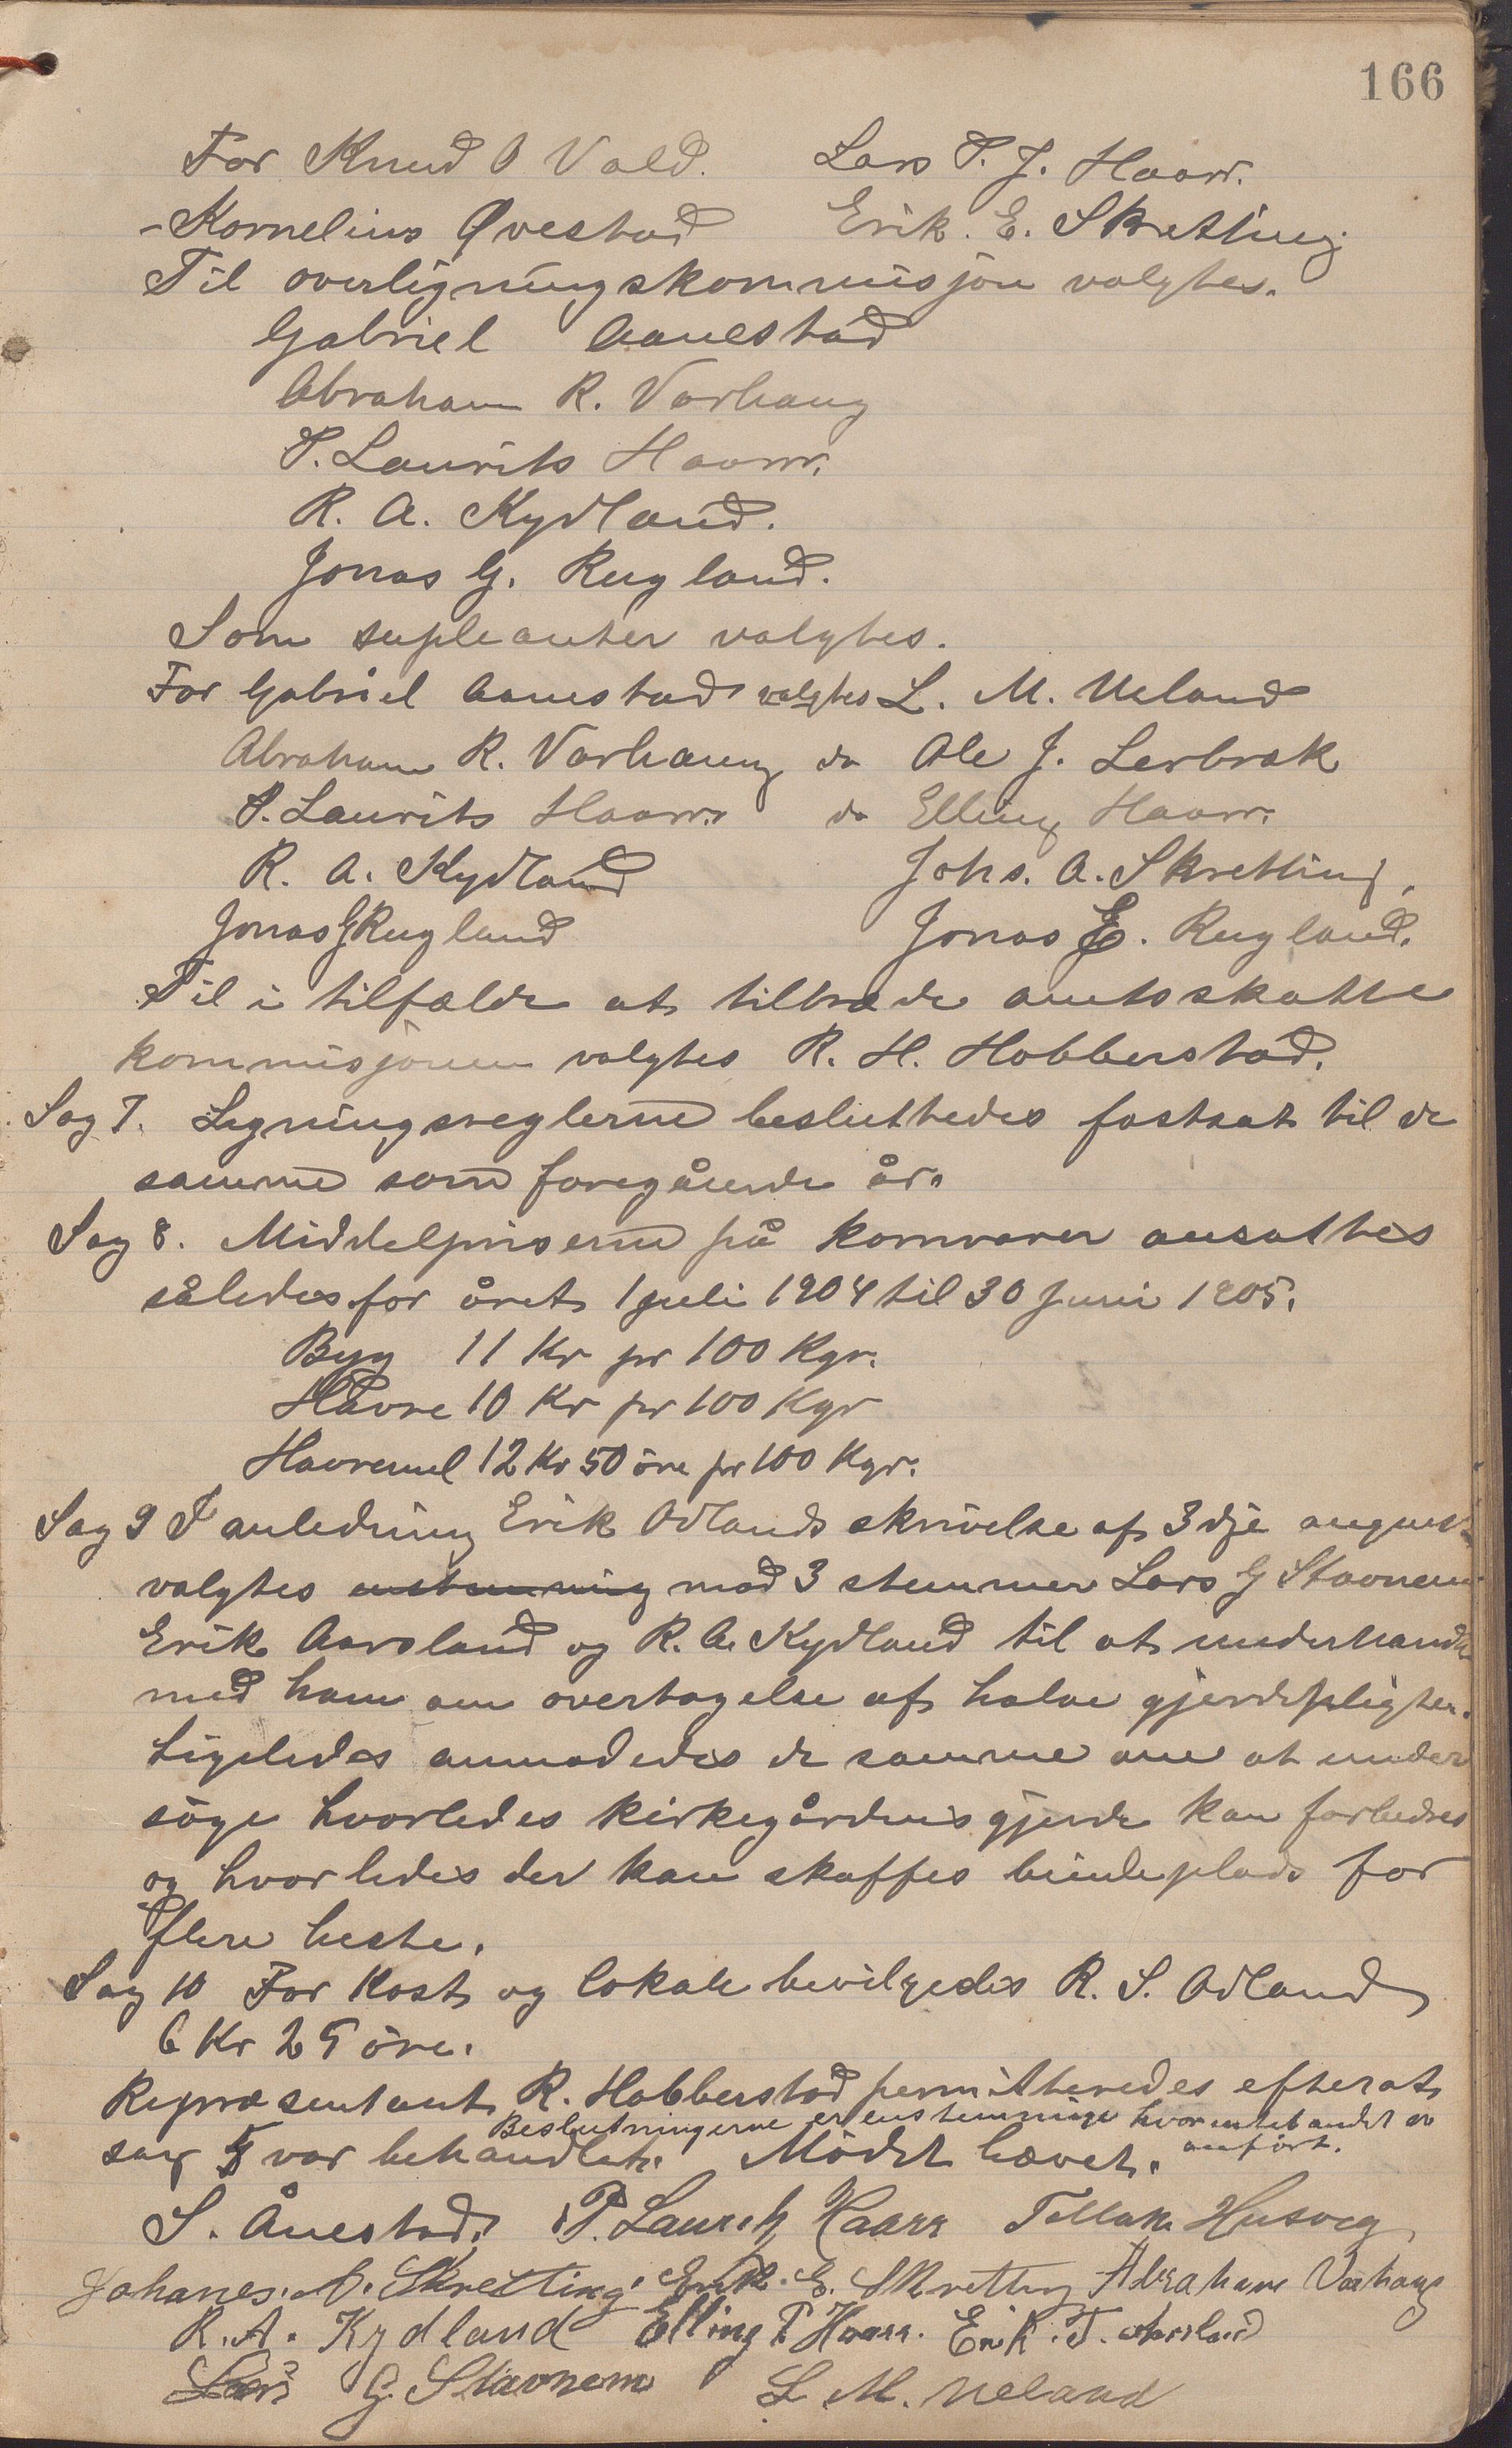 166
For Knud O Vold. Lars T. J. Haarr.
- Kornelius Øvestad Erik. E. Skretting
Til overligningskommisjon valgtes.
Gabriel Aanestad
Abraham R. Varhaug
P. Laurits Haarr.
R. A. Kydland.
Jonas G. Rugland.
Som supleanter valgtes.
For Gabriel Aanestad valgtes L. M. Ueland
Abraham R. Varhaug do Ole J. Lerbrek
P. Laurits Haarr. do Elling Haarr.
R. A. Kydland Johs. A. Skretting.
Jonas G Rugland Jonas E. Rugland.
Til i tilfælde at tiltræde amtsskatte
kommisjonen valgtes R. H. Hobberstad.
Sag 7. Ligningsreglerne besluttedes fastsat til de
samme som foregående år.
Sag 8. Middelpriserne på kornvarer ansattes
således for året 1 juli 1904 til 30 Juni 1905.
Byg 11 Kr pr 100 Kgr.
Havre 10 Kr pr 100 Kgr
Havremel 12 Kr 50 öre pr 100 Kgr.
Sag 9 I anledning Erik Ødlands skrivelse af 3dje august
valgtes enstemmig mod 3 stemmer Lars G Stavnem
Erik Aarsland og R. A. Kydland til at underhandle
med ham om overtagelse af halve gjerdepligten.
Ligeledes anmodedes de samme om at under
söge hvorledes kirkegårdens gjerde kan forbedres
og hvorledes der kan skaffes bindeplads for
flere heste.
Sag 10 For Kost og lokale bevilgedes R. S. Ødland
6 Kr 25 öre.
Repræsentant R. Hobberstad permitteredes efterat
Beslutningerne er enstemmige hvor intet andet er
sag 5 var behandlet. Mödet hævet. anfört.
S. Ånestad. P. Laurits Haarr Tollak Husveg
Johanes. A. Skretting Erik. E. Skretting Abraham Varhaug
R. A. Kydland Elling P. Haarr. Erik. T. Aarsland
Lars G. Stavnem L. M. Ueland